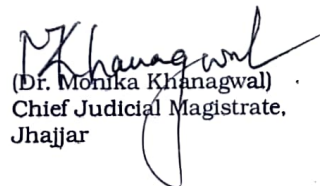 MKhanagwal
(Dr. Monika Khanagwal)
Chief Judicial Magistrate,
Jhajjar